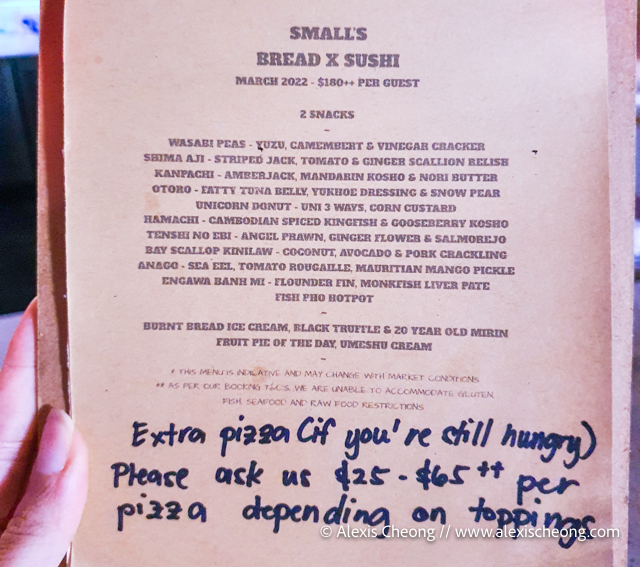 SMALL'S
BREAD X SUSHI
MARCH 2022 - $180++ PER GUEST
2 SNACKS
~
WASABI PEAS - YUZU, CAMEMBERT & VINEGAR CRACKER
SHIMA AJI - STRIPED JACK, TOMATO & GINGER SCALLION RELISH
KANPACHI - AMBERJACK, MANDARIN KOSHO & NORI BUTTER
OTORO - FATTY TUNA BELLY, YUKHOE DRESSING & SNOW PEAR
UNICORN DONUT - UNI 3 WAYS, CORN CUSTARD
HAMACHI - CAMBODIAN SPICED KINGFISH & GOOSEBERRY KOSHO
TENSHI NO EBI - ANGEL PRAWN, GINGER FLOWER & SALMOREJO
BAY SCALLOP KINILAW - COCONUT, AVOCADO & PORK CRACKLING
ANAGO - SEA EEL, TOMATO ROUGAILLE, MAURITIAN MANGO PICKLE
ENGAWA BANH MI - FLOUNDER FIN, MONKFISH LIVER PATE
FISH PHO HOTPOT
~
BURNT BREAD ICE CREAM, BLACK TRUFFLE & 20 YEAR OLD MIRIN
FRUIT PIE OF THE DAY, UMESHU CREAM
~
* THIS MENU IS INDICATIVE AND MAY CHANGE WITH MARKET CONDITIONS
** AS PER OUR BOOKING T&C'S, WE ARE UNABLE TO ACCOMMODATE GLUTEN,
FISH, SEAFOOD AND RAW FOOD RESTRICTIONS
Extra pizza (if you're still hungry)
Please ask us $25 - $65++ per
pizza depending on toppings
© Alexis Cheong // www.alexischeong.com